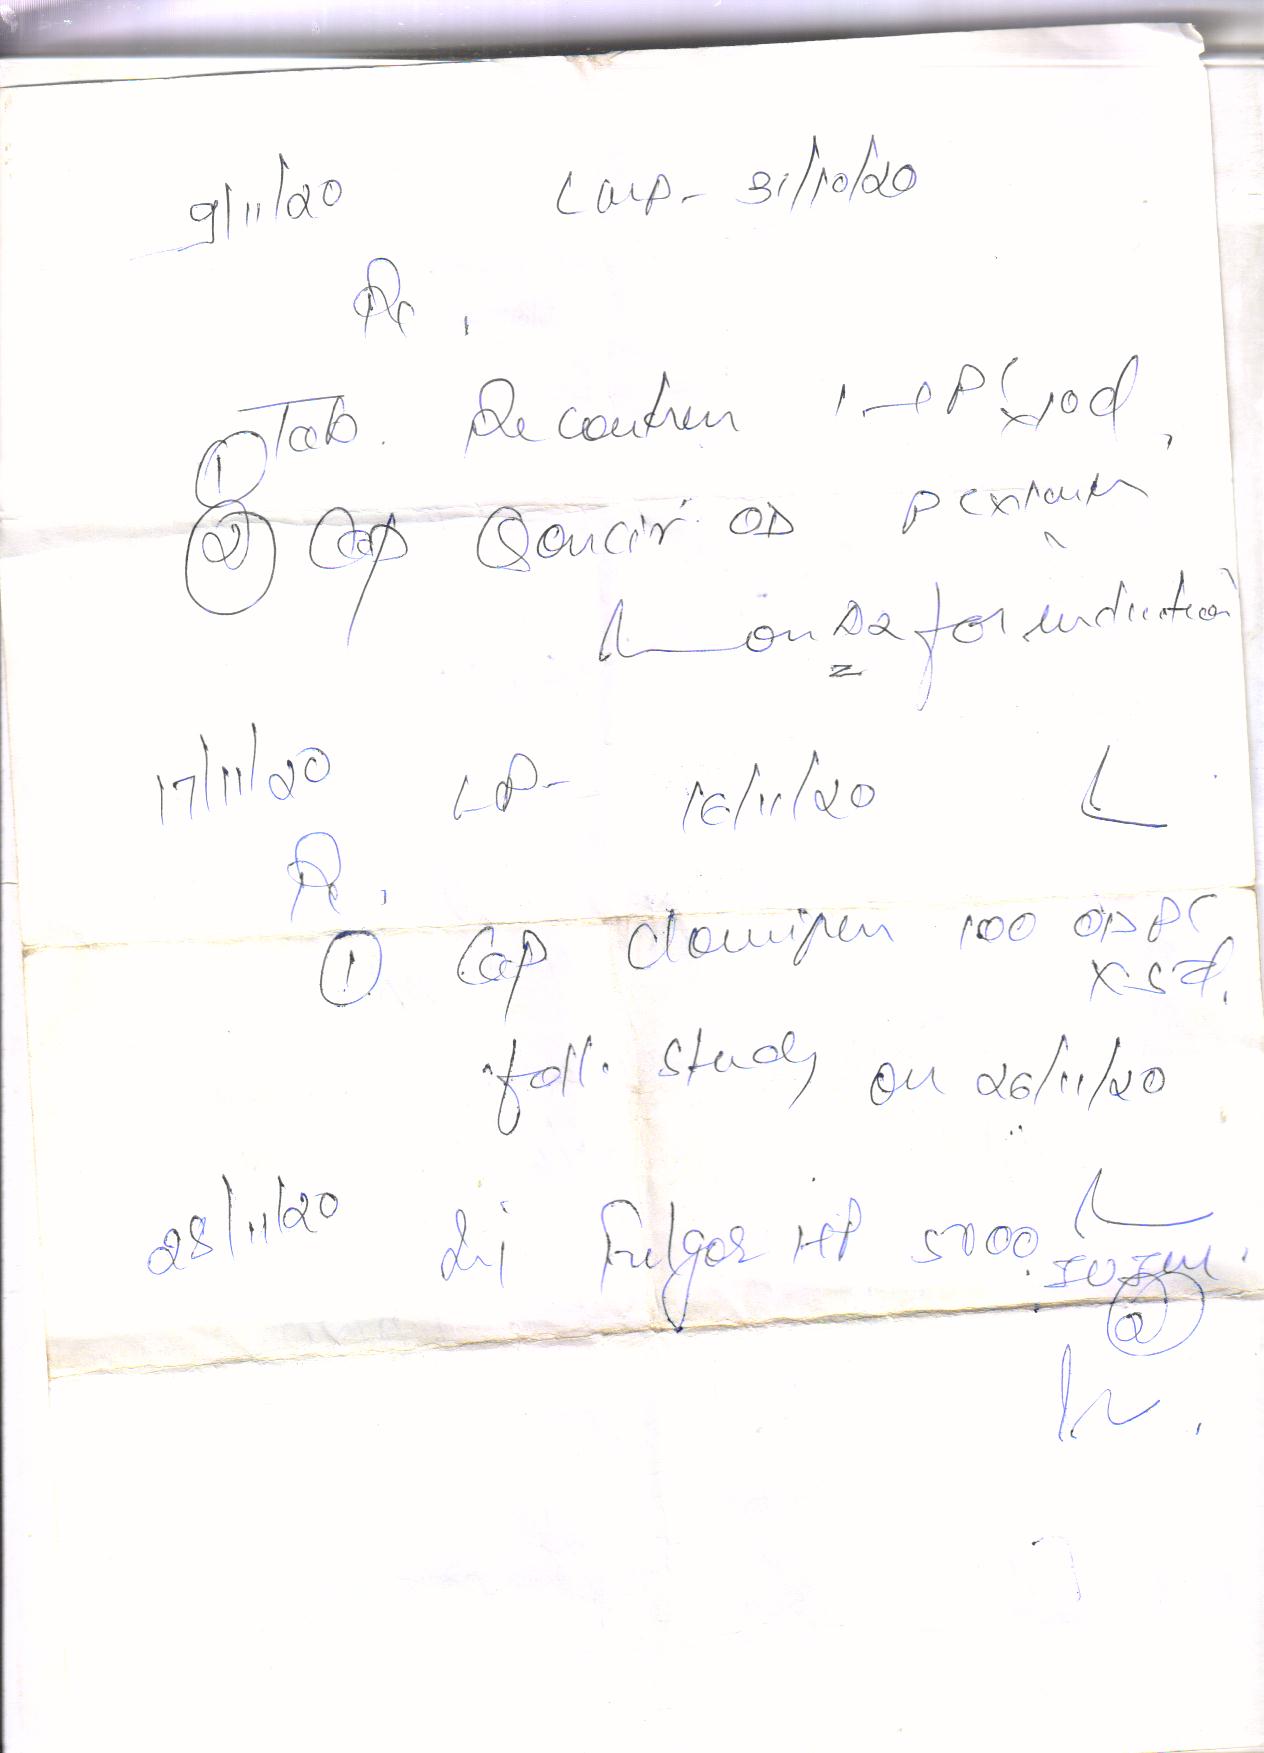 9/11/20 LMP- 31/10/20
Rx
① Tab. 1-1 PC x10d
② Cap OD PC x1
on D2 for induction
17/11/20 LP- 16/11/20
Rx
① Cap Clomipen 100 OD PC
x5d.
foll. study on 26/11/20
28/11/20 Inj Fulgor HP 5000
IU IM.
②